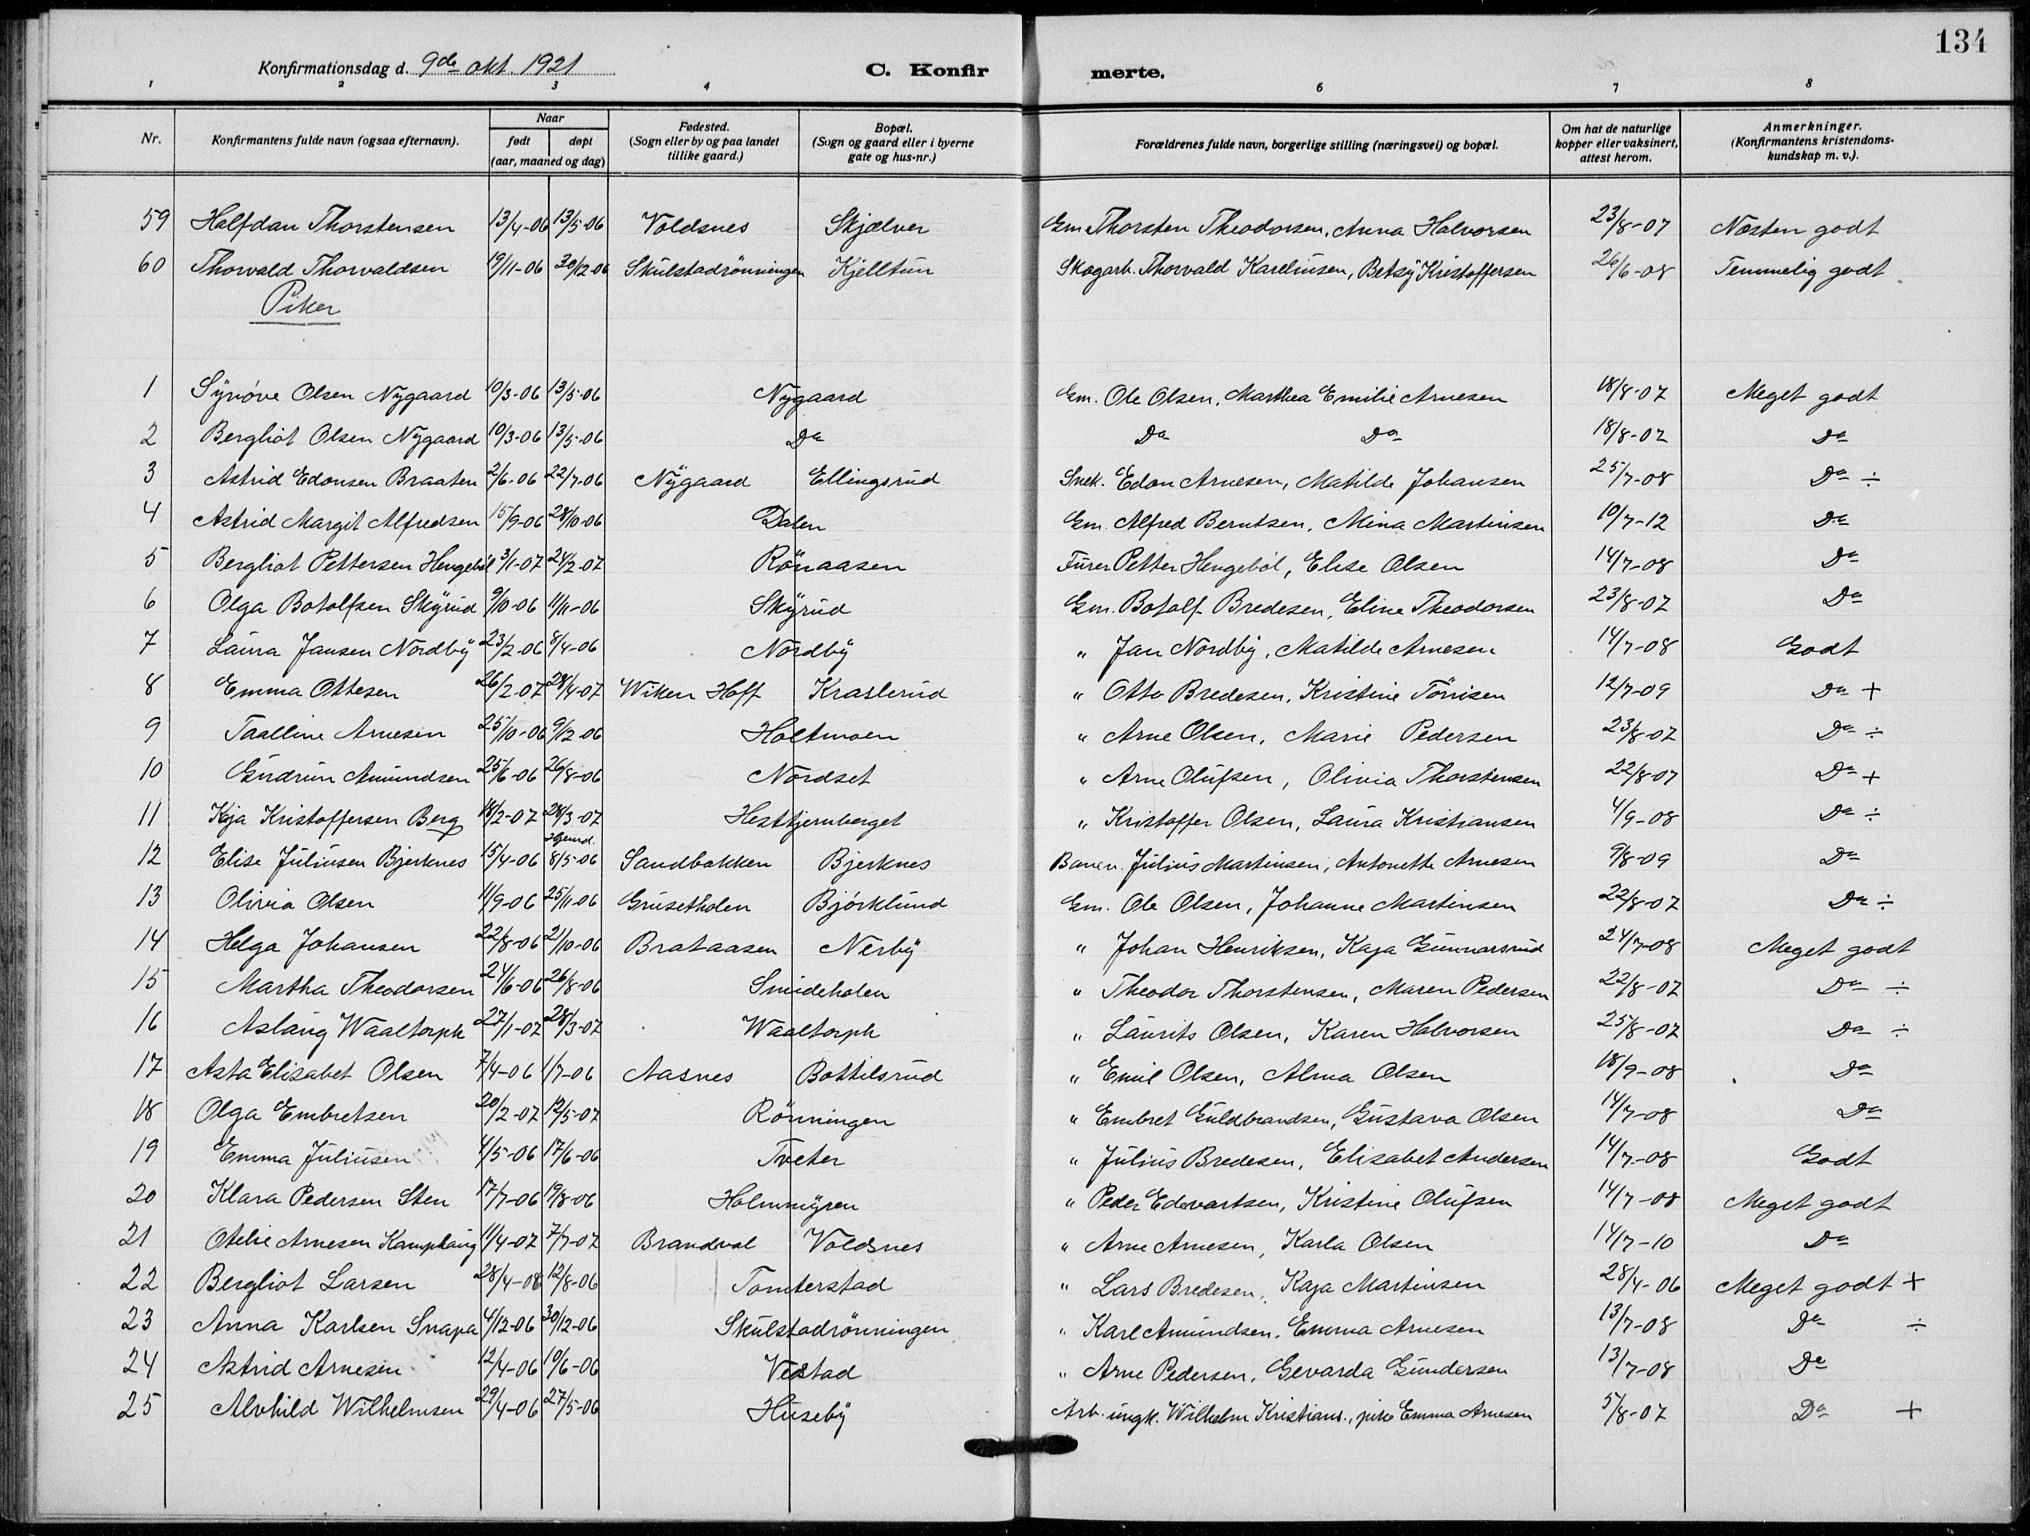 134
Konfirmationsdag d. 9de okt. 1921 C. Konfir merte.
1 2 3 4 6 7 8
Nr. Konfirmantens fulde navn (ogsaa efternavn). Naar født døpt (aar, maaned og dag) Fødested. (Sogn eller by og paa landet tillike gaard.) Bopæl. (Sogn og gaard eller i byerne gate og hus-nr.) Forældrenes fulde navn, borgerlige stilling (næringsvei) og bopæl. Om hat de naturlige kopper eller vaksinert, attest herom. Anmerkninger. (Konfirmantens kristendoms-kundskap m. v.).
59 Halfdan Thorstensen 13/4-06 13/5-06 Voldsnes Skjælver Gm. Thorsten Theodorsen, Anna Halvorsen 23/8-07 Næsten godt
60 Thorvald Thorvaldsen 19/11-06 30/12-06 Skulstadrönningen Kjelltun Skogarb. Thorvald Kareliusen, Betsy Kristoffersen 26/6-08 Temmelig godt
Piker
1 Synøve Olsen Nygaard 10/3-06 13/5-06 Nygaard Gm. Ole Olsen, Marthea Emilie Arnesen 18/8-07 Meget godt
2 Bergliot Olsen Nygaard 10/3-06 13/5-06 Do Do Do 18/8-07 Do
3 Astrid Edonsen Braaten 2/6-06 22/7-06 Nygaard Ellingsrud Snek. Edon Arnesen, Matilde Johansen 25/7-08 Do ÷
4 Astrid Margit Alfredsen 15/9-06 28/10-06 Dalen Gm. Alfred Berntsen, Mina Martinsen 10/7-12 Do
5 Bergliot Pettersen Hengeböl 3/1-07 24/2-07 Rönaasen Furer Petter Hengeböl, Elise Olsen 14/7-08 Do
6 Olga Botolfsen Skyrud 9/10-06 11/11-06 Skyrud Gm. Botolf Bredesen, Eline Theodorsen 23/8-07 Do
7 Laura Jansen Nordby 23/2-06 8/4-06 Nordby " Jan Nordby, Matilde Arnesen 14/7-08 Godt
8 Emma Ottesen 26/2-07 28/4-07 Wiken Hoff Kraslerud " Otto Bredesen, Kristine Tönisen 12/7-09 Do +
9 Taalline Arnesen 25/10-06 9/12-06 Holtmoen " Arne Olsen, Marie Pedersen 23/8-07 Do ÷
10 Gudrun Amundsen 25/6-06 26/8-06 Nordset " Arne Olufsen, Olivia Thorstensen 22/8-07 Do +
11 Kaja Kristoffersen Berg 18/2-07 28/3-07 Hesttjernberget " Kristoffer Olsen, Laura Kristiansen 4/9-08 Do ÷
12 Elise Juliusen Bjerknes 15/4-06 8/5-06 Sandbakken Bjerknes Banen. Julius Martinsen, Antonette Arnesen 9/8-09 Do
13 Olivia Olsen 11/9-06 25/11-06 Grusetholen Bjørklund Gm. Ole Olsen, Johanne Martinsen 22/8-07 Do ÷
14 Helga Johansen 22/8-06 21/10-06 Brataasen Nerby " Johan Henriksen, Kaja Gunnarsrud 24/7-08 Meget godt
15 Martha Theodorsen 24/6-06 26/8-06 Smideholen " Theodor Thorstensen, Maren Pedersen 22/8-07 Do ÷
16 Aslaug Waaltorph 27/1-07 28/3-07 Waaltorph " Laurits Olsen, Karen Halvorsen 25/8-07 Do ÷
17 Asta Elisabet Olsen 7/4-06 1/7-06 Aasnes Bottilsrud " Emil Olsen, Alma Olsen 18/9-08 Do
18 Olga Embretsen 20/2-07 12/5-07 Rönningen " Embret Guldbrandsen, Gustava Olsen 14/7-08 Do
19 Emma Juliusen 4/5-06 17/6-06 Tveter " Julius Bredesen, Elisabet Andersen 14/7-08 Godt
20 Klara Pedersen Sten 17/7-06 19/8-06 Holmmyren " Peder Edevartsen, Kristine Olufsen 14/7-08 Meget godt
21 Otelie Arnesen Kamphaug 11/4-07 7/7-07 Brandval Voldsnes " Arne Arnesen, Karla Olsen 14/7-10 Do
22 Bergliot Larsen 28/4-08 12/8-06 Tomterstad " Lars Bredesen, Kaja Martinsen 28/4-06 Meget godt +
23 Anna Karlsen Snapa 4/12-06 30/12-06 Skulstadrönningen " Karl Amundsen, Emma Arnesen 13/7-08 Do ÷
24 Astrid Arnesen 12/4-06 10/6-06 Vestad " Arne Pedersen, Gevarda Gundersen 13/7-08 Do
25 Alvhild Wilhelmsen 29/4-06 27/5-06 Huseby Arb. ungk. Wilhelm Kristians., pike Emma Arnesen 5/8-07 Do +